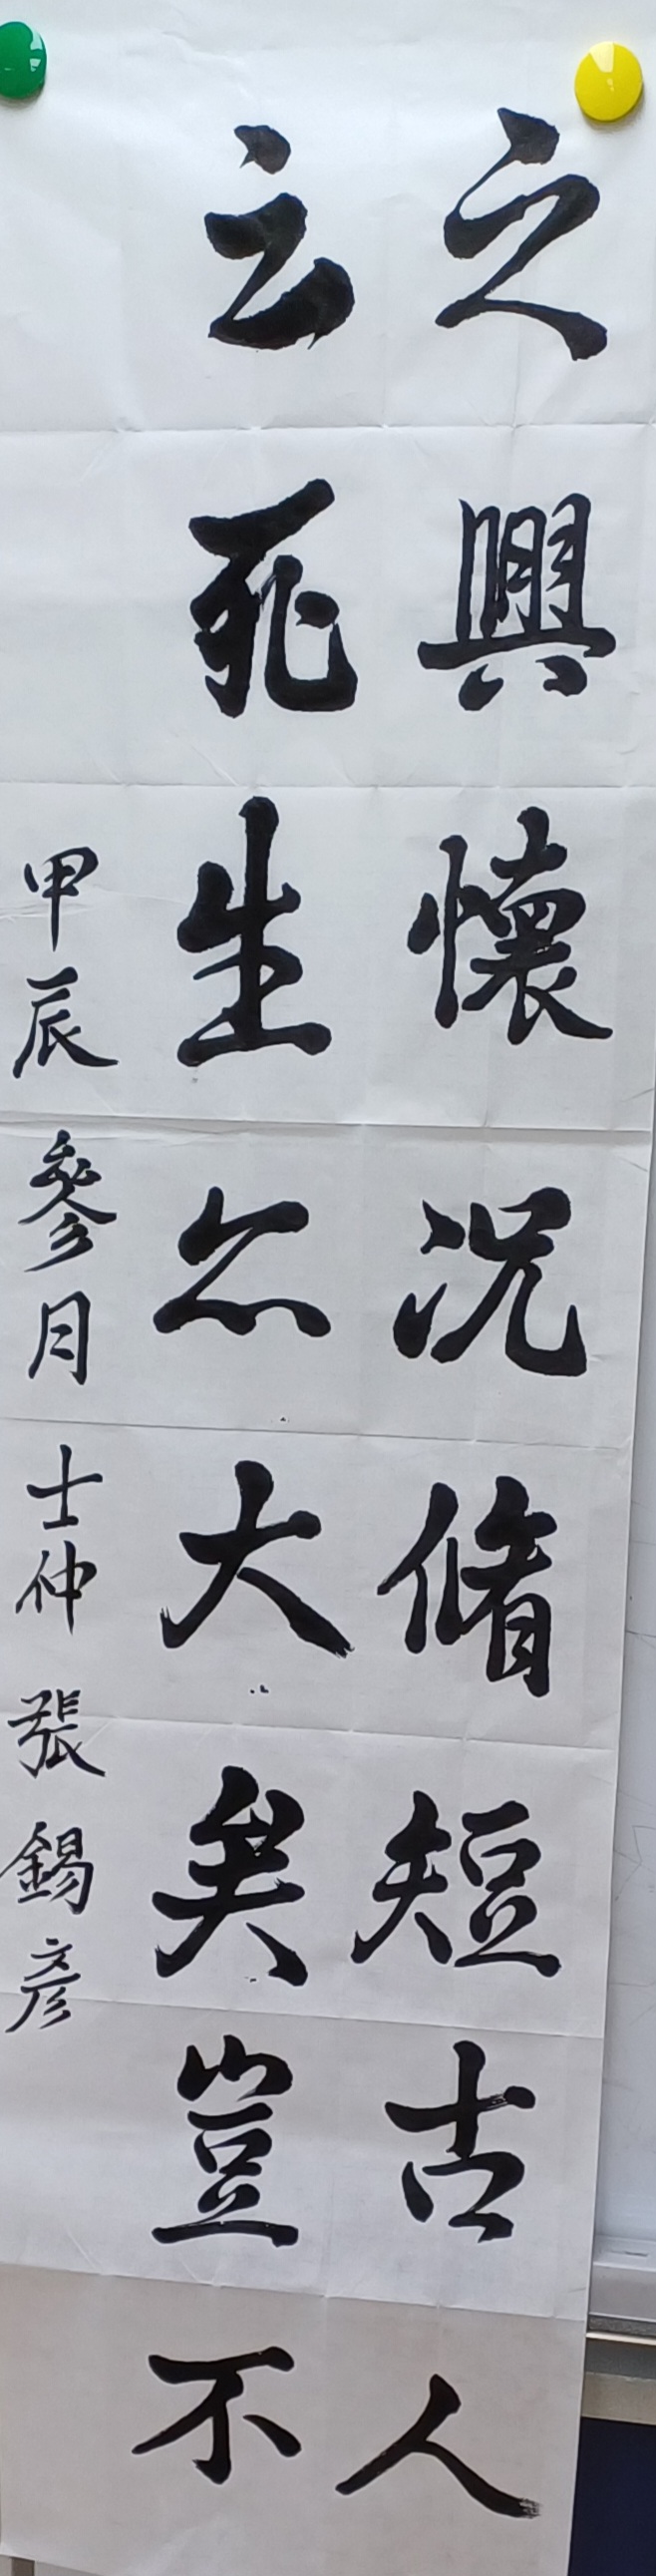 之興懷况脩短古人
云死生亦大矣豈不
甲辰參月士仲張錫彥